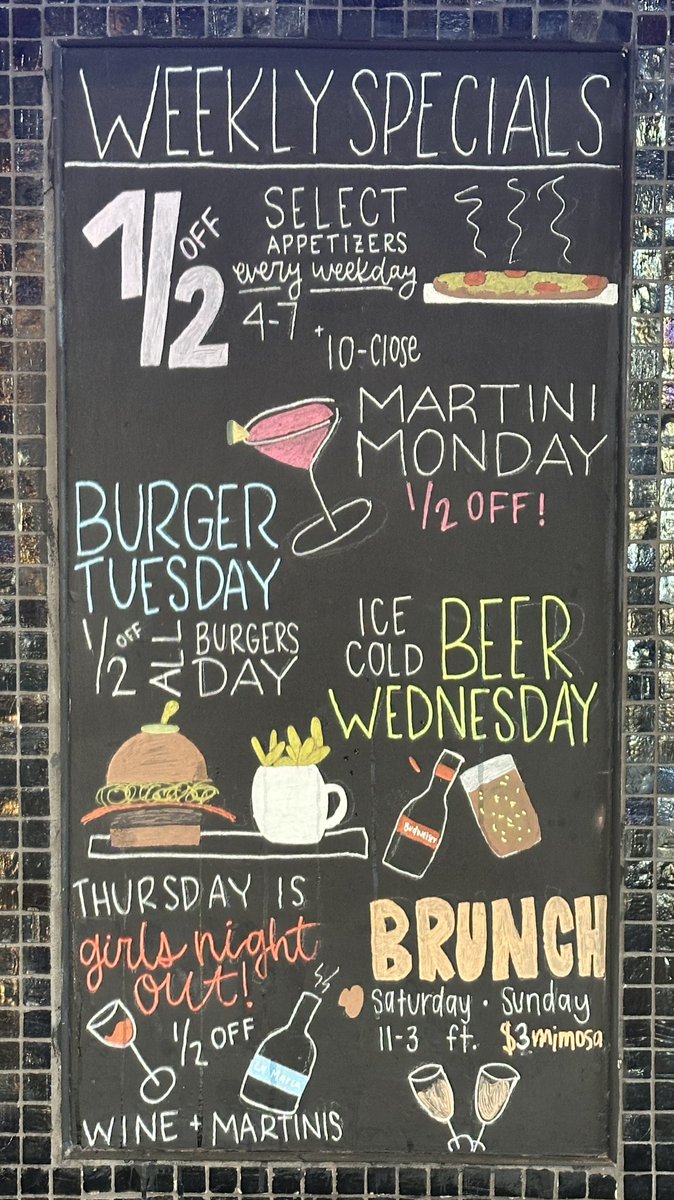 WEEKLY SPECIALS
1/2 OFF
SELECT
APPETIZERS
every weekday
4-7 + 10-close
MARTINI
MONDAY
1/2 OFF!
BURGER
TUESDAY
1/2 OFF ALL BURGERS
DAY
ICE
COLD BEER
WEDNESDAY
Budweiser
THURSDAY IS
girls night
out!
1/2 OFF
La Marca
WINE + MARTINIS
BRUNCH
Saturday · Sunday
11-3 ft. $3 mimosa